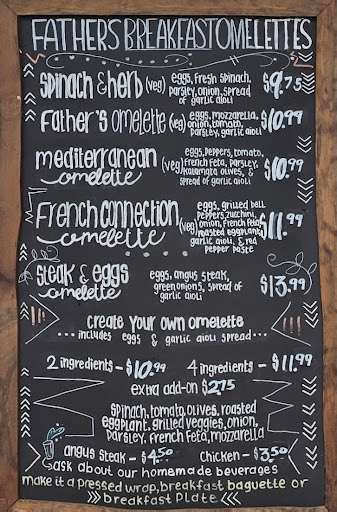 FATHER'S BREAKFAST OMELETTES
spinach & herb (veg) eggs, fresh spinach, parsley, onion, spread of garlic aioli $9.75
Father's omelette (veg) eggs, mozzarella, onion, tomato, parsley, garlic aioli $10.99
mediterranean omelette (veg) eggs, peppers, tomato, french feta, parsley, kalamata olives, & spread of garlic aioli $10.99
French connection omelette (veg) eggs, grilled bell peppers, zucchini, onion, french feta, roasted eggplant, garlic aioli, & red pepper paste $11.99
steak & eggs omelette eggs, angus steak, green onions, spread of garlic aioli $13.99
create your own omelette
...includes eggs & garlic aioli spread...
2 ingredients - $10.99 4 ingredients - $11.99
extra add-on - $2.75
spinach, tomato, olives, roasted
eggplant, grilled veggies, onion,
parsley, french feta, mozzarella
angus steak - $4.50 chicken - $3.50
ask about our homemade beverages
make it a pressed wrap, breakfast baguette or
breakfast plate